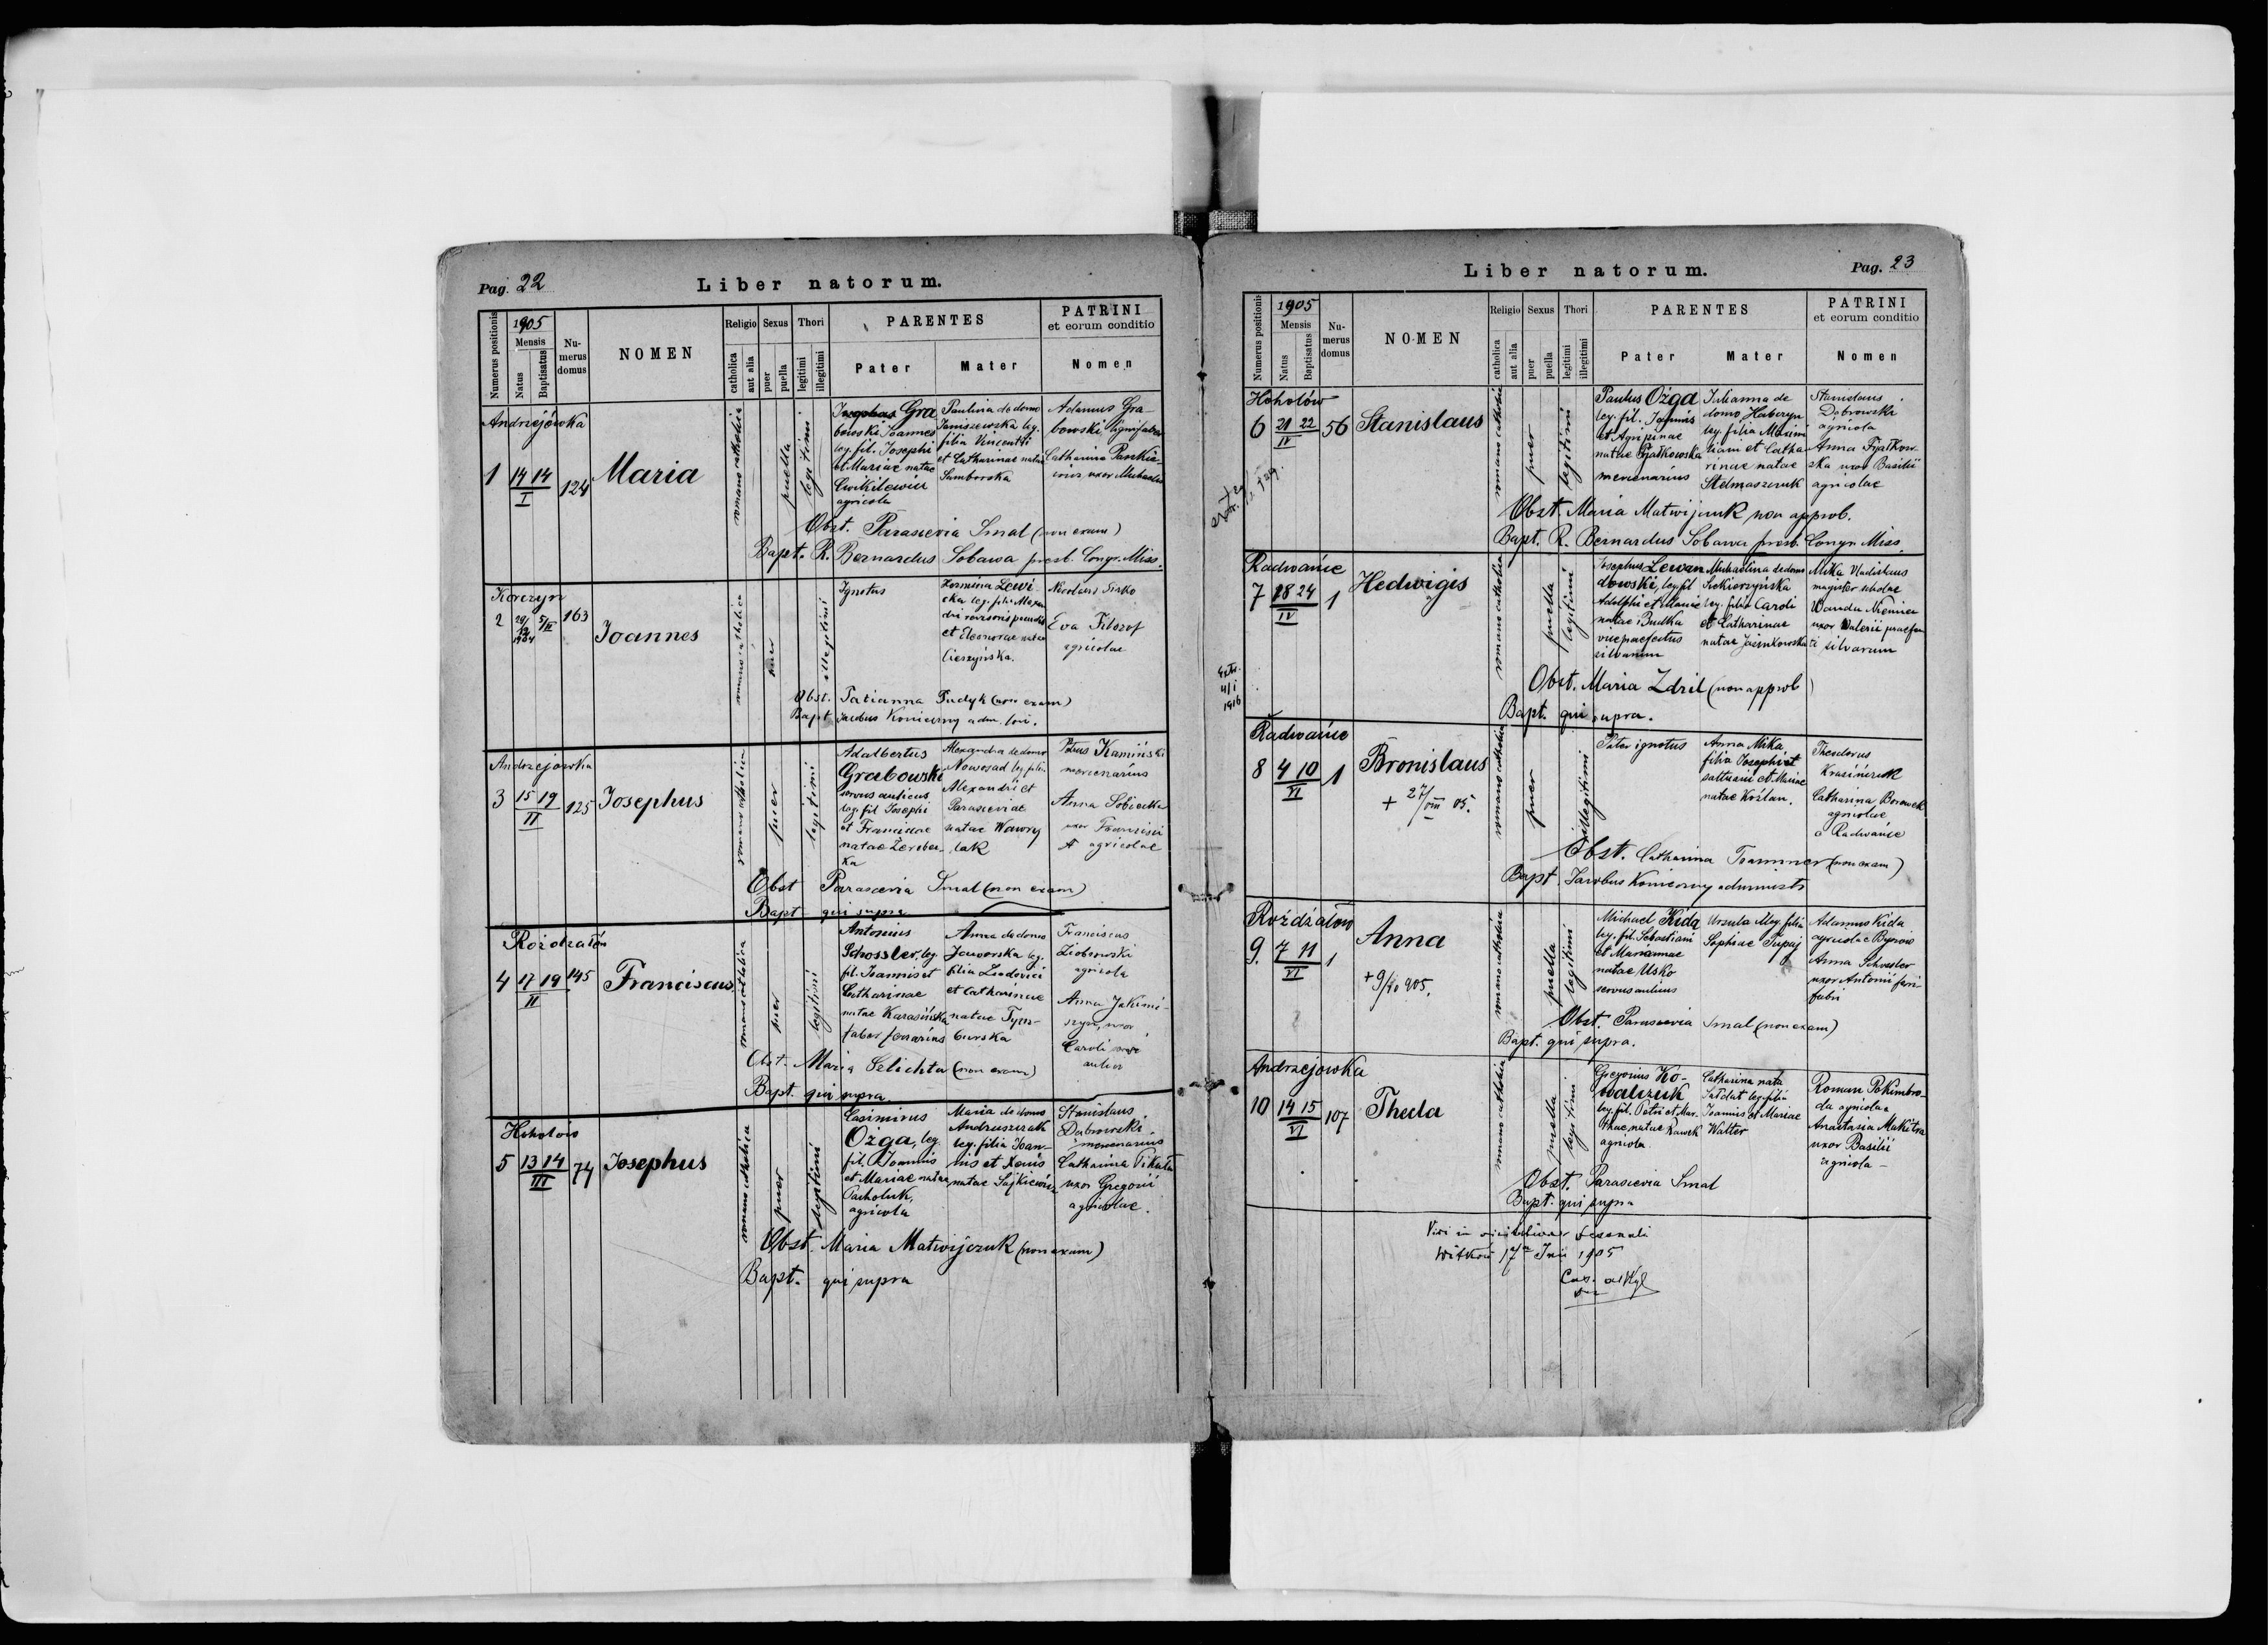 Pag. 22
Liber natorum.
Numerus positionis
1905
Mensis
Natus
Baptisatus
Numerus domus
NOMEN
Religio
catholica
aut alia
Sexus
puer
puella
Thori
legitimi
illegitimi
PARENTES
Pater
Mater
PATRINI
et eorum conditio
Nomen
Andrzejówka
1 14 14 I 124
Maria
romano catholica
puella
legitimi
Gra
bowski Joannes
leg. fil. Josephi
et Mariae natae
Ćwikilewicz
agricola
Paulina de domo
Janiszewska leg.
filia Vincentii
et Catharinae natae
Samborska
Adamus Gra-
bowski lignifaber
Catharina
uxor Michaelis
Obst. Parascevia Smal (non exam)
Bapt. R. Bernardus Sobawa presb. Congr. Miss.
Korczyn
2 163
Joannes
romano catholica
puer
illegitimi
Ignotus
Lewi
cka leg. filia
et Eleonorae natae
Cieszyńska.
Nicolaus Sisko
Eva Filozof
agricolae
Obst. Tatianna Pudyk (non exam)
Bapt. Jacobus Konieczny adm. loci.
Andrzejowka
3 15 19 II 125
Josephus
romano catholica
puer
legitimi
Adalbertus
Grabowski
servus aulicus
leg. fil Josephi
et Franciscae
natae
ka
Alexandra de domo
Nowosad leg. filia
Alexandri et
Parasceviae
natae Wawry
lak
Petrus Kamiński
mercenarius
Anna
uxor Francisci
agricolae
Obst Parascevia Smal (non exam)
Bapt. qui supra
Rożdżałów
4 17 19 II 145
Franciscus
romano catholica
puer
legitimi
Antonius
Schossler, leg.
fil. Joannis et
Catharinae
natae Karasińska
faber ferrarius
Anna de domo
Jaworska leg.
filia Ludovici
et Catharinae
natae Tym-
burska
Franciscus
Ziobrowski
agricola
Anna Jakimi-
uxor
Caroli servi
aulici
Obst. Maria Selichta (non exam)
Bapt. qui supra
Hohołów
5 13 14 III 74
Josephus
romano catholica
puer
legitimi
Casimirus
Ożga, leg.
fil. Joannis
et Mariae natae
Pacholuk,
agricola
Maria de domo
Andruszczak
leg. filia Joan-
nis et Xenis
natae Sajkiewicz
Stanislaus
Dąbrowski
mercenarius
Catharina Pikuła
uxor Gregorii
agricolae.
Obst. Maria Matwijczuk (non exam)
Bapt. qui supra
Pag. 23
Liber natorum.
Numerus positionis
1905
Mensis
Natus
Baptisatus
Numerus domus
NOMEN
Religio
catholica
aut alia
Sexus
puer
puella
Thori
legitimi
illegitimi
PARENTES
Pater
Mater
PATRINI
et eorum conditio
Nomen
Hohołów
6 21 22 IV 56
Stanislaus
romano catholica
puer
legitimi
Paulus Ożga
leg. fil. Joannis
et Agripinae
natae Fijałkowska
mercenarius
Julianna de
domo Haberyn
leg. filia Maximi
liani et Catha
rinae natae
Stelmaszczuk
Stanislaus
Dąbrowski
agricola
Anna Fijałkow-
ska uxor Basilii
agricolae
Obst. Maria Matwijczuk non approb.
Bapt. R. Bernardus Sobawa presb. Congr. Miss.
Radwańce
7 18 24 IV 1
Hedwigis
romano catholica
puella
legitimi
Josephus Lewan
dowski, leg. fil
Adolphi et Mariae
natae Budka
vicepraefectus
silvarum
Michaelina de domo
leg. filia Caroli
et Catharinae
natae Jasinkowska
Mika Vladislaus
magister scholae
Vanda Niemiec
uxor Valerii praefec
ti silvarum
Extr.
4/I
1916
Obst. Maria Zdril (non approb)
Bapt. qui supra.
Radwańce
8 4 10 VI 1
Bronislaus
+ 27/VIII 05.
romano catholica
puer
illegitimi
Pater ignotus
Anna Mika
filia Josephi et
saltuarii et Mariae
natae Koślan.
Theodorus
Krasińczuk
Catharina Borowek
agricolae
a Radwańce
Obst. Catharina (non exam)
Bapt. Jacobus Konieczny administr
Rożdżałów
9. 7 11 VI 1
Anna
romano catholica
puella
legitimi
Michael Kida
leg. fil. Sebastiani
et Mariannae
natae Usko
servus aulicus
Ursula illeg. filia
Sophiae Supaj
Adamus Kida
agricola e Byszow
Anna
uxor Antonii ferri-
fabri
Obst. Parascevia Smal (non exam)
Bapt. qui supra.
Andrzejowka
10 14 15 VI 107
Thecla
romano catholica
puella
legitimi
Gregorius Ko-
walczuk
leg. fil. Petri et Mar-
thae, natae Kawek
agricola
Catharina nata
Sałdat leg. filia
Joannis et Mariae
Walter
Roman Pokimbro-
da agricola
Anastasia Makitra
uxor Basilii
agricola
Obst. Parascevia Smal
Bapt. qui supra
Vidi in visitatione decanali
Witków 17 Junii 1905